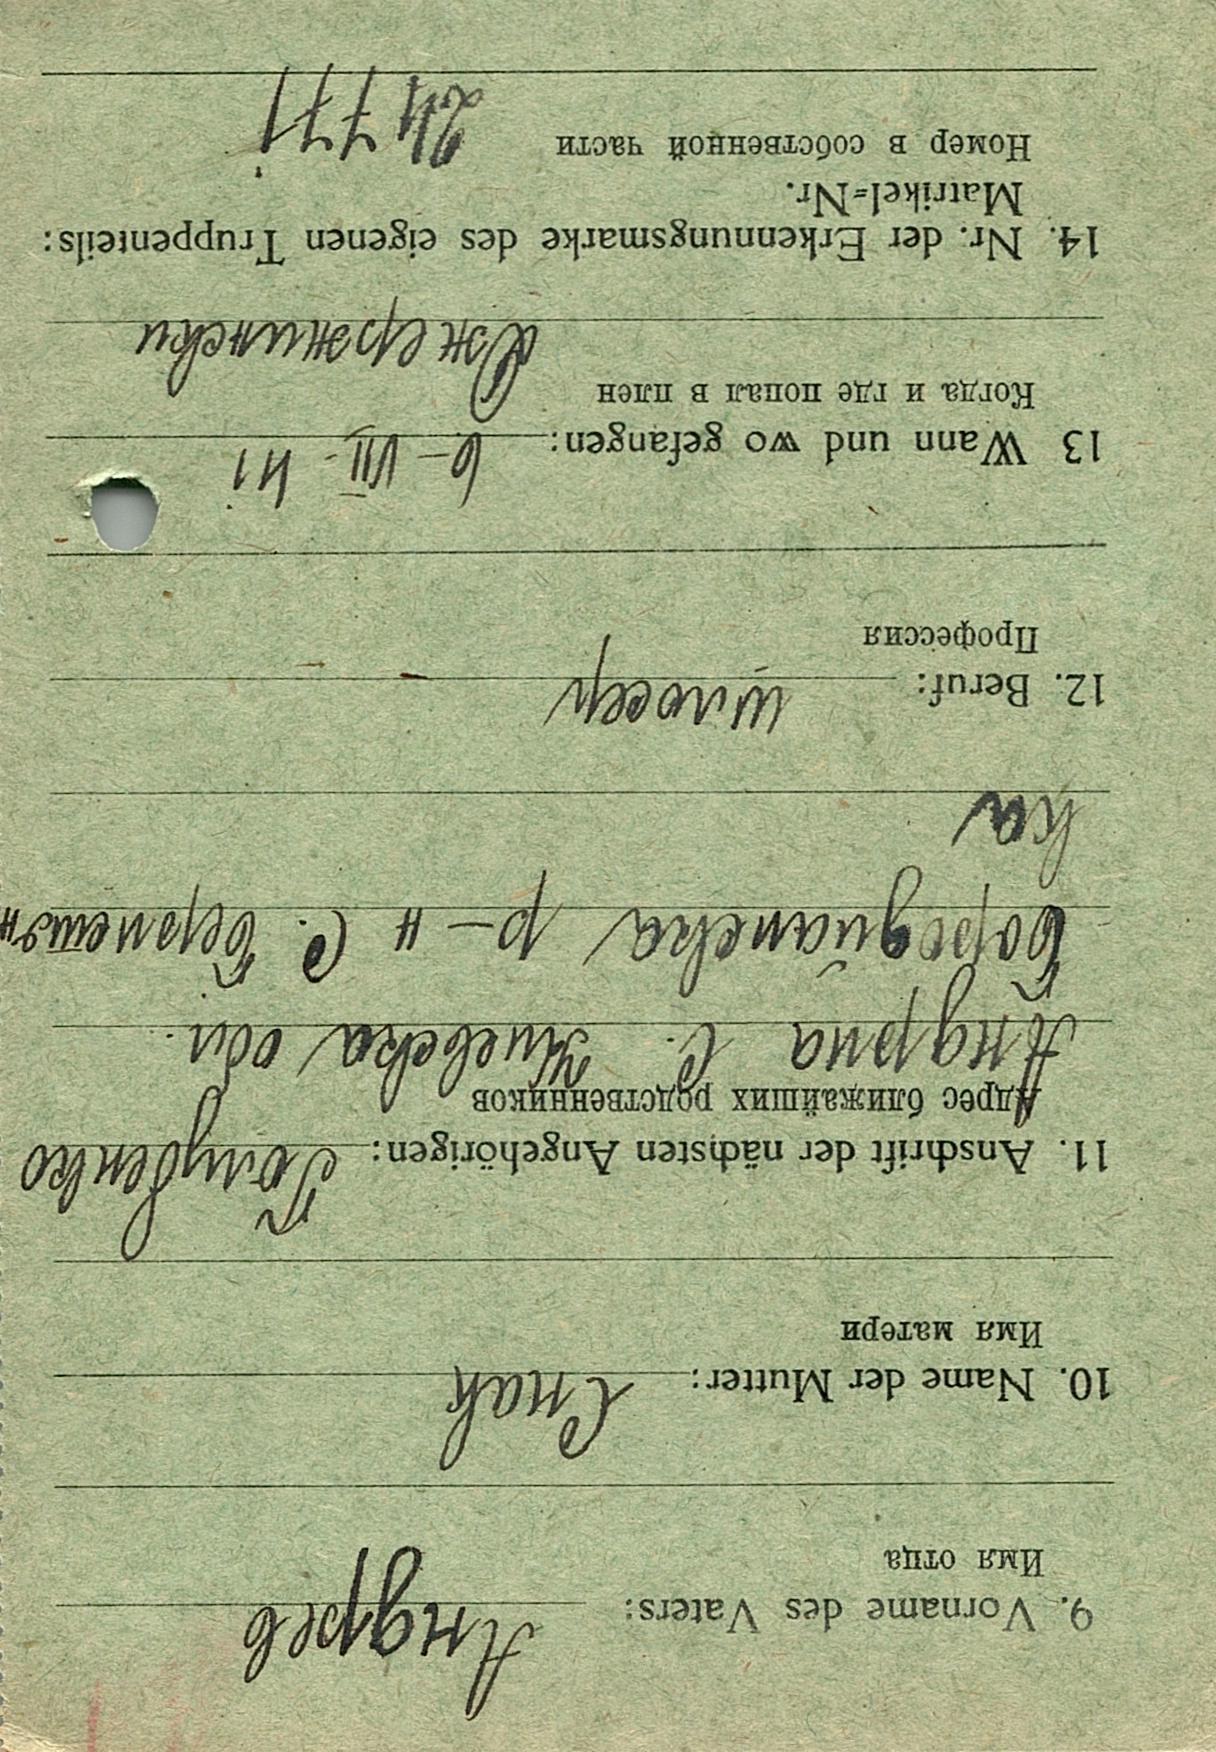 9. Vorname des Vaters: Андрев
Имя отца
10. Name der Mutter:
Имя матери
11. Anschrift der nächsten Angehörigen: Голубенко
Адрес ближайших родственников
Андриа С. Киевска обл.
Бородиамска р-н С.
ка
12. Beruf: шлосер
Профессия
13 Wann und wo gefangen: 6-VII-41
Когда и где попал в плен Джержински
14. Nr. der Erkennungsmarke des eigenen Truppenteils:
Matrikel=Nr.
Номер в собственной части 24771